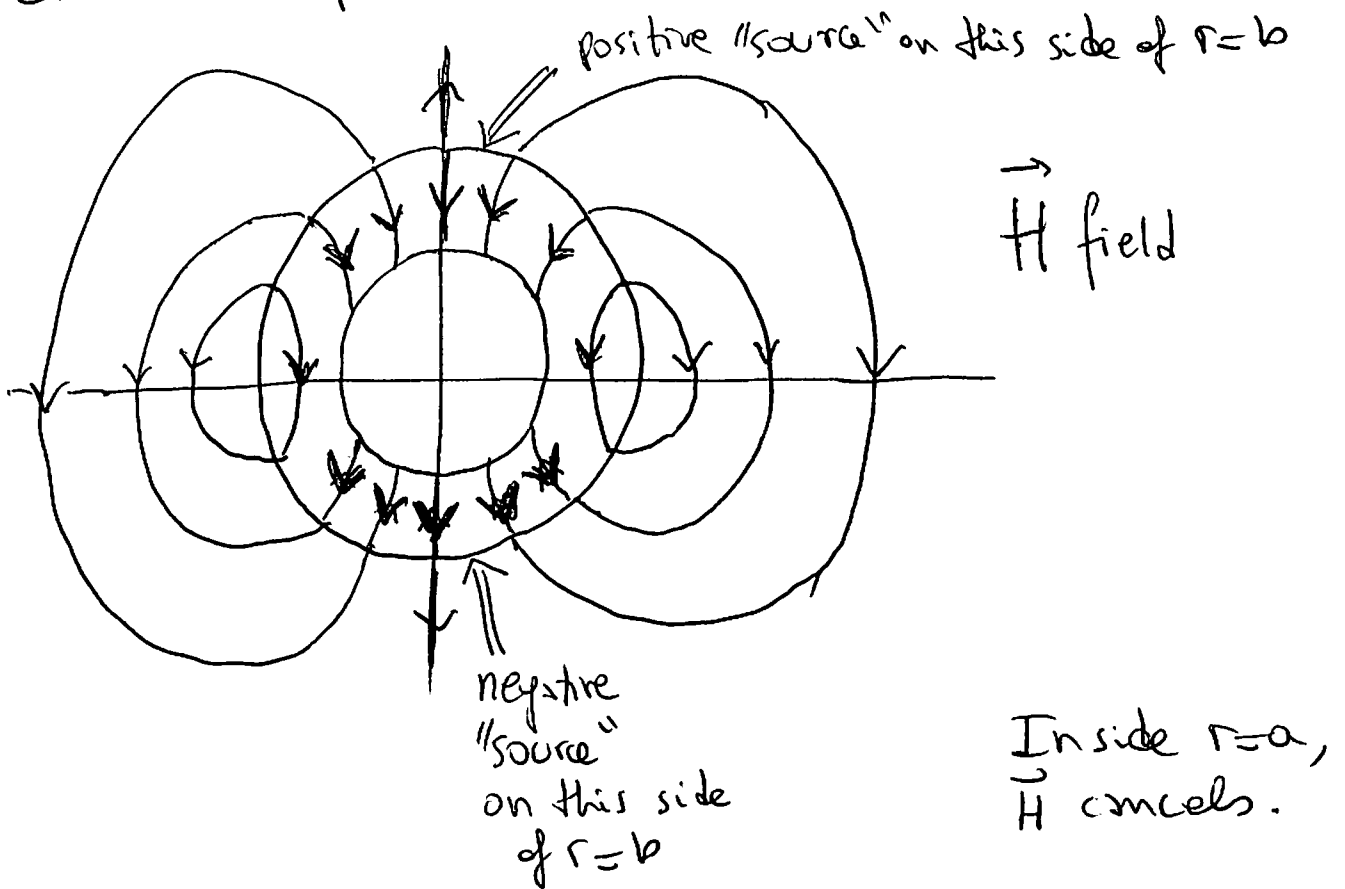 positive "source" on this side of r=b
H field
negative
"source"
on this side
of r=b
Inside r=a,
H cancels.